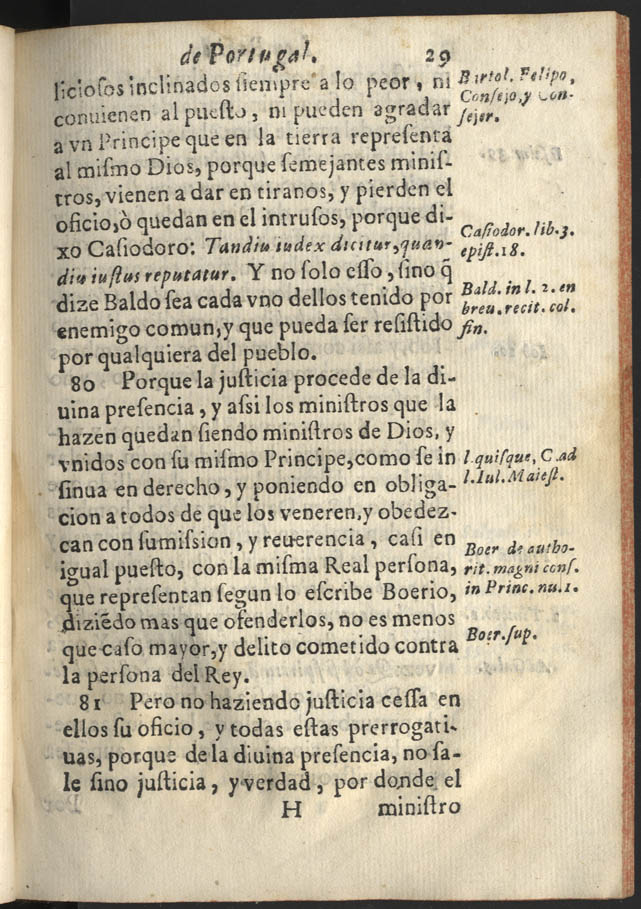 de Portugal. 29
liciosos inclinados siempre a lo peor, ni
conuienen al puesto, ni pueden agradar
a vn Principe que en la tierra representa
al mismo Dios, porque semejantes minis-
tros, vienen a dar en tiranos, y pierden el
oficio, ò quedan en el intrusos, porque di-
xo Casiodoro: Tandiu iudex dicitur, quan-
diu iustus reputatur. Y no solo esso, sino q̃
dize Baldo sea cada vno dellos tenido por
enemigo comun, y que pueda ser resistido
por qualquiera del pueblo.
80 Porque la justicia procede de la di-
uina presencia, y assi los ministros que la
hazen quedan siendo ministros de Dios, y
vnidos con su mismo Principe, como se in
sinua en derecho, y poniendo en obliga-
cion a todos de que los veneren, y obedez-
can con sumission, y reuerencia, casi en
igual puesto, con la misma Real persona,
que representan segun lo escribe Boerio,
diziẽdo mas que ofenderlos, no es menos
que caso mayor, y delito cometido contra
la persona del Rey.
81 Pero no haziendo justicia cessa en
ellos su oficio, y todas estas prerrogati-
uas, porque de la diuina presencia, no sa-
le sino justicia, y verdad, por donde el
H ministro
Bartol. Felipo,
Consejo, y Con-
sejer.
Casiodor. lib. 3.
epist. 18.
Bald. in l. 2. en
breu. recit. col.
fin.
l. quisque, C. ad
l. Iul. Maiest.
Boer de autho-
rit. magni cons.
in Princ. nu. 1.
Boer. sup.